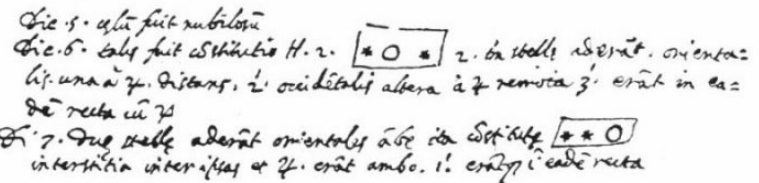 Die .5. cęlū fuit nubilosū
Die .6. talis fuit cōstitutio H. 2. * O * 2. tn̄ stellę aderāt. orienta=
lis. una à ♃. distans. 2'. occidētalis altera à ♃ remota 3'. erāt in ea=
dē recta cū ♃
Di 7. Duę stellę aderāt orientales ābę ita cōstitutę * * O
interstitia inter ipsas et ♃. erāt ambo. 1'. erātq; ī eadē recta